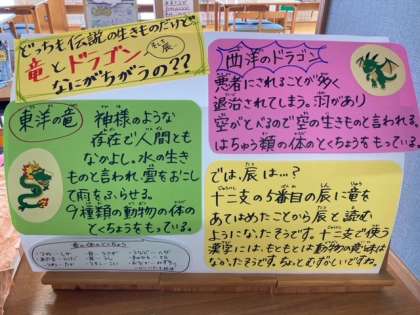 どっちも伝説の生きものだけど
竜とドラゴン
そして辰
なにがちがうの??
東洋の竜
神様のような
存在で人間とも
なかよし。水の生き
ものと言われ雲をおこし
て雨をふらせる。
9種類の動物の体の
とくちょうをもっている。
西洋のドラゴン
悪者にされることが多く
退治されてしまう。羽があり
空がとべるので空の生きものと言われる。
はちゅう類の体のとくちょうをもっている。
では、辰は…?
十二支の5番目の辰に竜を
あてはめたことから辰と読む
ようになったそうです。十二支で使う
漢字には、もともとは動物の意味は
なかったそうです。ちょっとむずかしいですね。